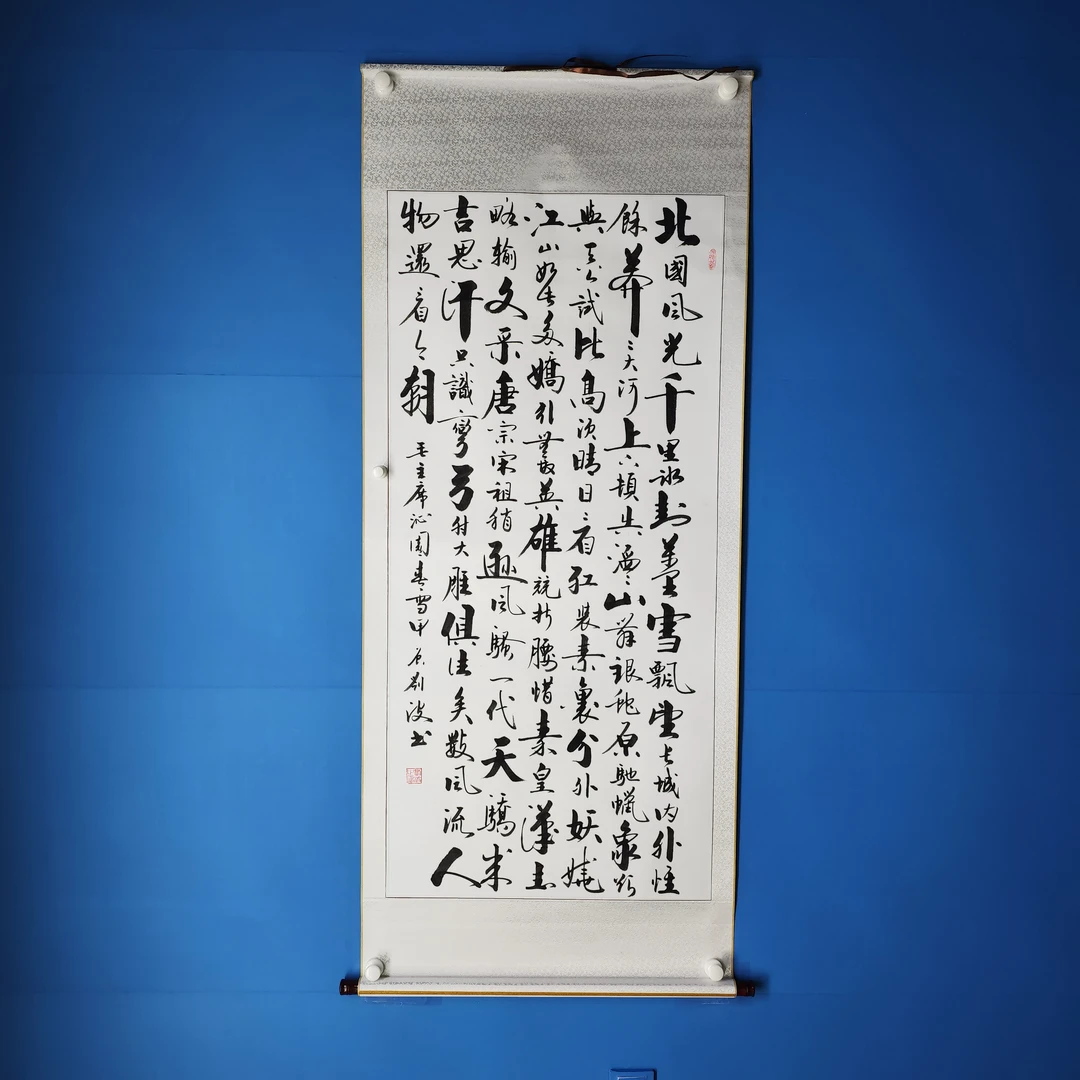 北國風光千里冰封萬里雪飄望長城內外惟
餘莽〻大河上下頓失滔〻山舞銀蛇原馳蠟象欲
與天公試比高須晴日看紅裝素裹分外妖嬈
江山如此多嬌引無數英雄競折腰惜秦皇漢武
略輸文采唐宗宋祖稍遜風騷一代天驕成
吉思汗只識彎弓射大雕俱往矣數風流人
物還看今朝 毛主席沁園春雪 中原劉波书